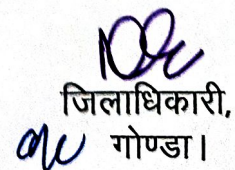 जिलाधिकारी,
गोण्डा।